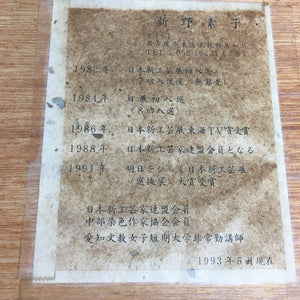 新野素子
1982年 日本新工芸展初入選
1984年 日展初入選
(8回入選)
1986年 日本新工芸展東海TV賞受賞
1988年 日本新工芸家連盟会員となる
1991年 明日をひらく日本工芸展
選抜展 大賞受賞
日本新工芸家連盟会員
中部染色作家協会会員
愛知文教女子短期大学非常勤講師
1993年5月現在